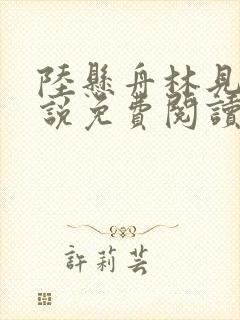 陸懸舟林見
說免費閱讀
許莉芸